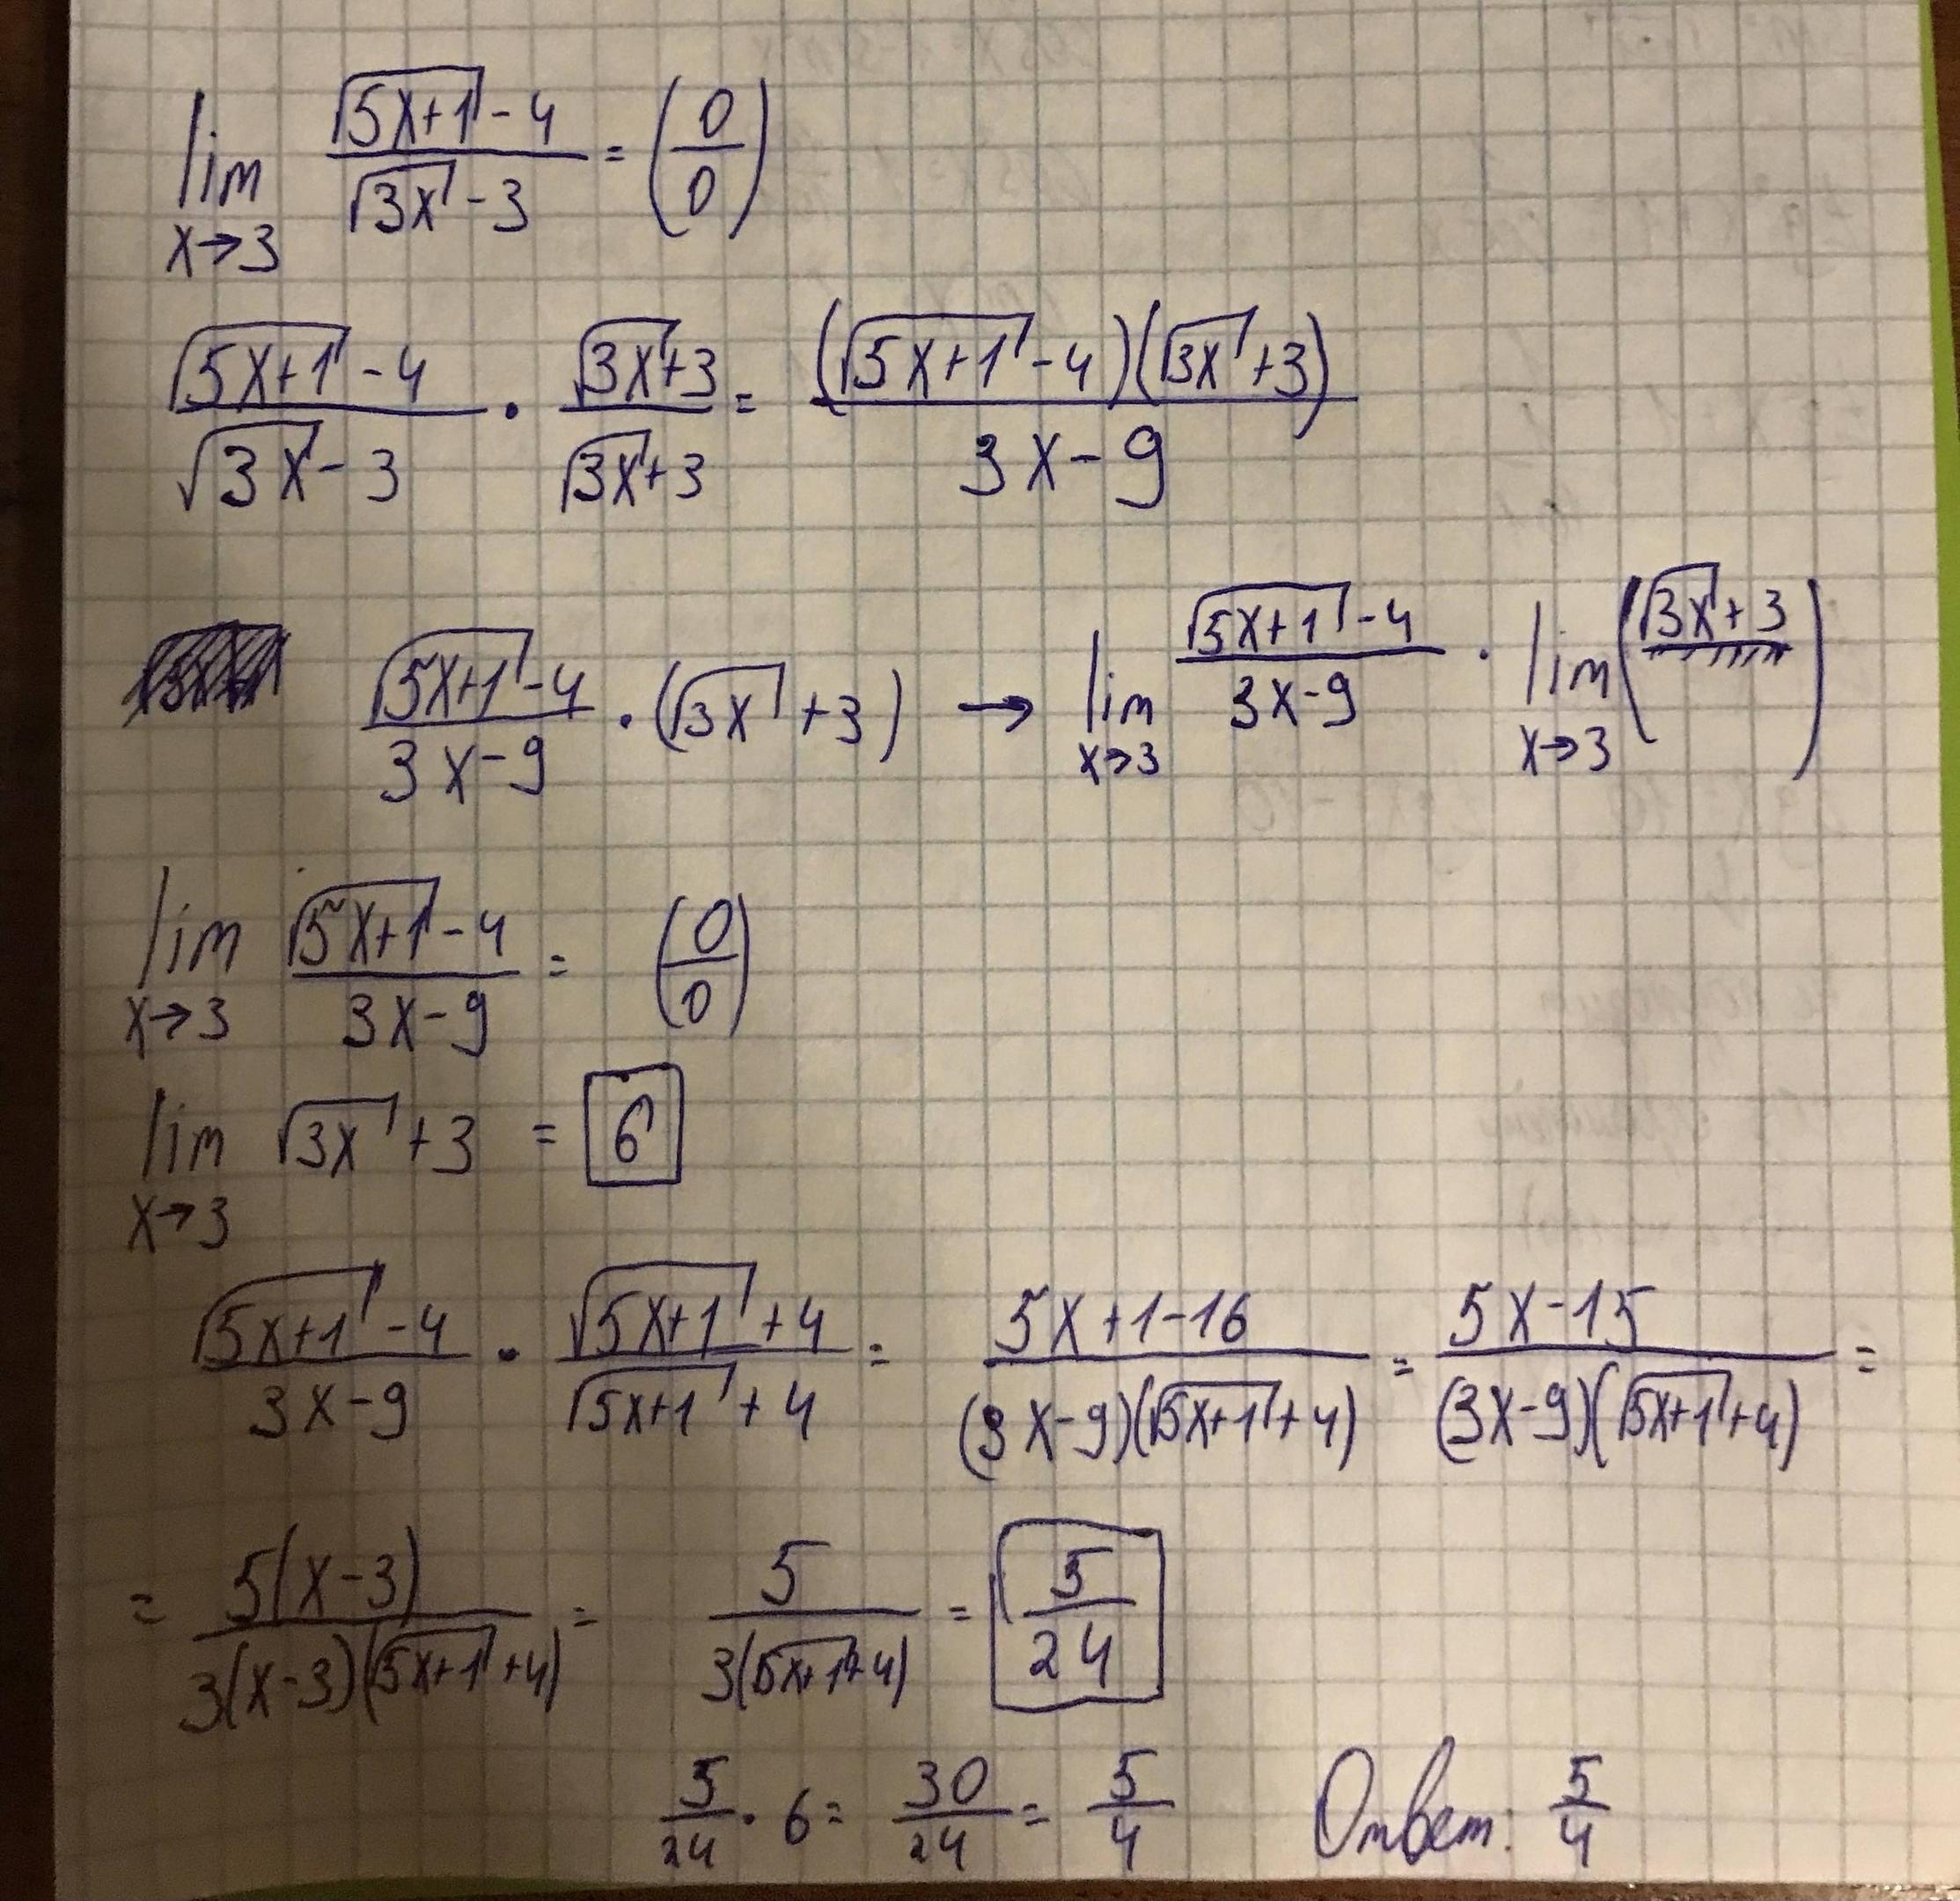 lim x→3 (√(5x+1) - 4)/(√(3x) - 3) = (0/0)
(√(5x+1) - 4)/(√(3x) - 3) · (√(3x)+3)/(√(3x)+3) = ((√(5x+1) - 4)(√(3x) + 3))/(3x - 9)
(√(5x+1) - 4)/(3x - 9) · (√(3x) + 3) → lim x→3 (√(5x+1) - 4)/(3x - 9) · lim x→3 (√(3x) + 3)
lim x→3 (√(5x+1) - 4)/(3x - 9) = (0/0)
lim x→3 √(3x) + 3 = 6
(√(5x+1) - 4)/(3x - 9) · (√(5x+1) + 4)/(√(5x+1) + 4) = (5x + 1 - 16)/((3x - 9)(√(5x+1) + 4)) = (5x - 15)/((3x - 9)(√(5x+1) + 4)) =
= 5(x - 3)/(3(x - 3)(√(5x+1) + 4)) = 5/(3(√(5x+1) + 4)) = 5/24
5/24 · 6 = 30/24 = 5/4 Ответ: 5/4